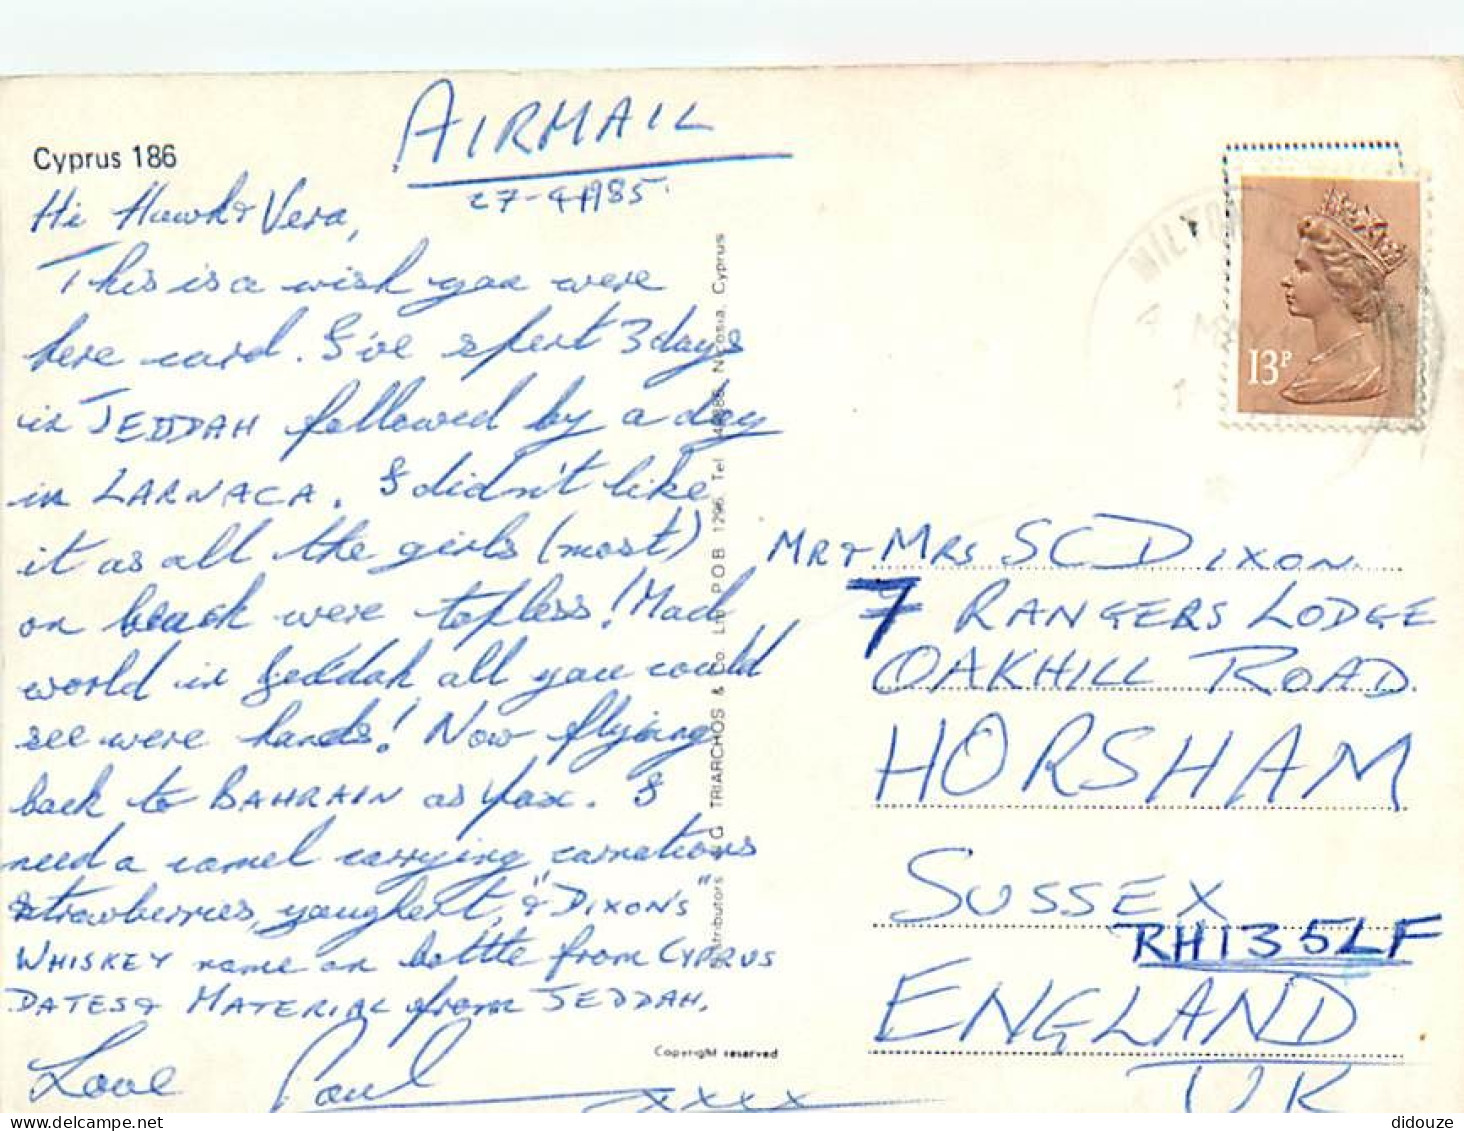 AIRMAIL
27-4-1985
Cyprus 186
Hi Hawk & Vera,
This is a wish you were
here card. I've spent 3 days
in JEDDAH followed by a day
in LARNACA. I didn't like
it as all the girls (most)
on beach were topless! Mad
world in Jeddah all you could
see were hands! Now flying
back to BAHRAIN as pax. I
need a camel carrying carnations
strawberries, youghert, & "DIXONS"
WHISKEY name on bottle from CYPRUS
DATES & MATERIAL from JEDDAH.
Love Paul
xxxx
TRIARCHOS & Co. Ltd P O B 1296, Tel Nicosia, Cyprus
Copyright reserved
MILTON
MAY
13P
MR & MRS SC DIXON.
7 RANGERS LODGE
OAKHILL ROAD
HORSHAM
SUSSEX
RH13 5LF
ENGLAND
UK
didouze